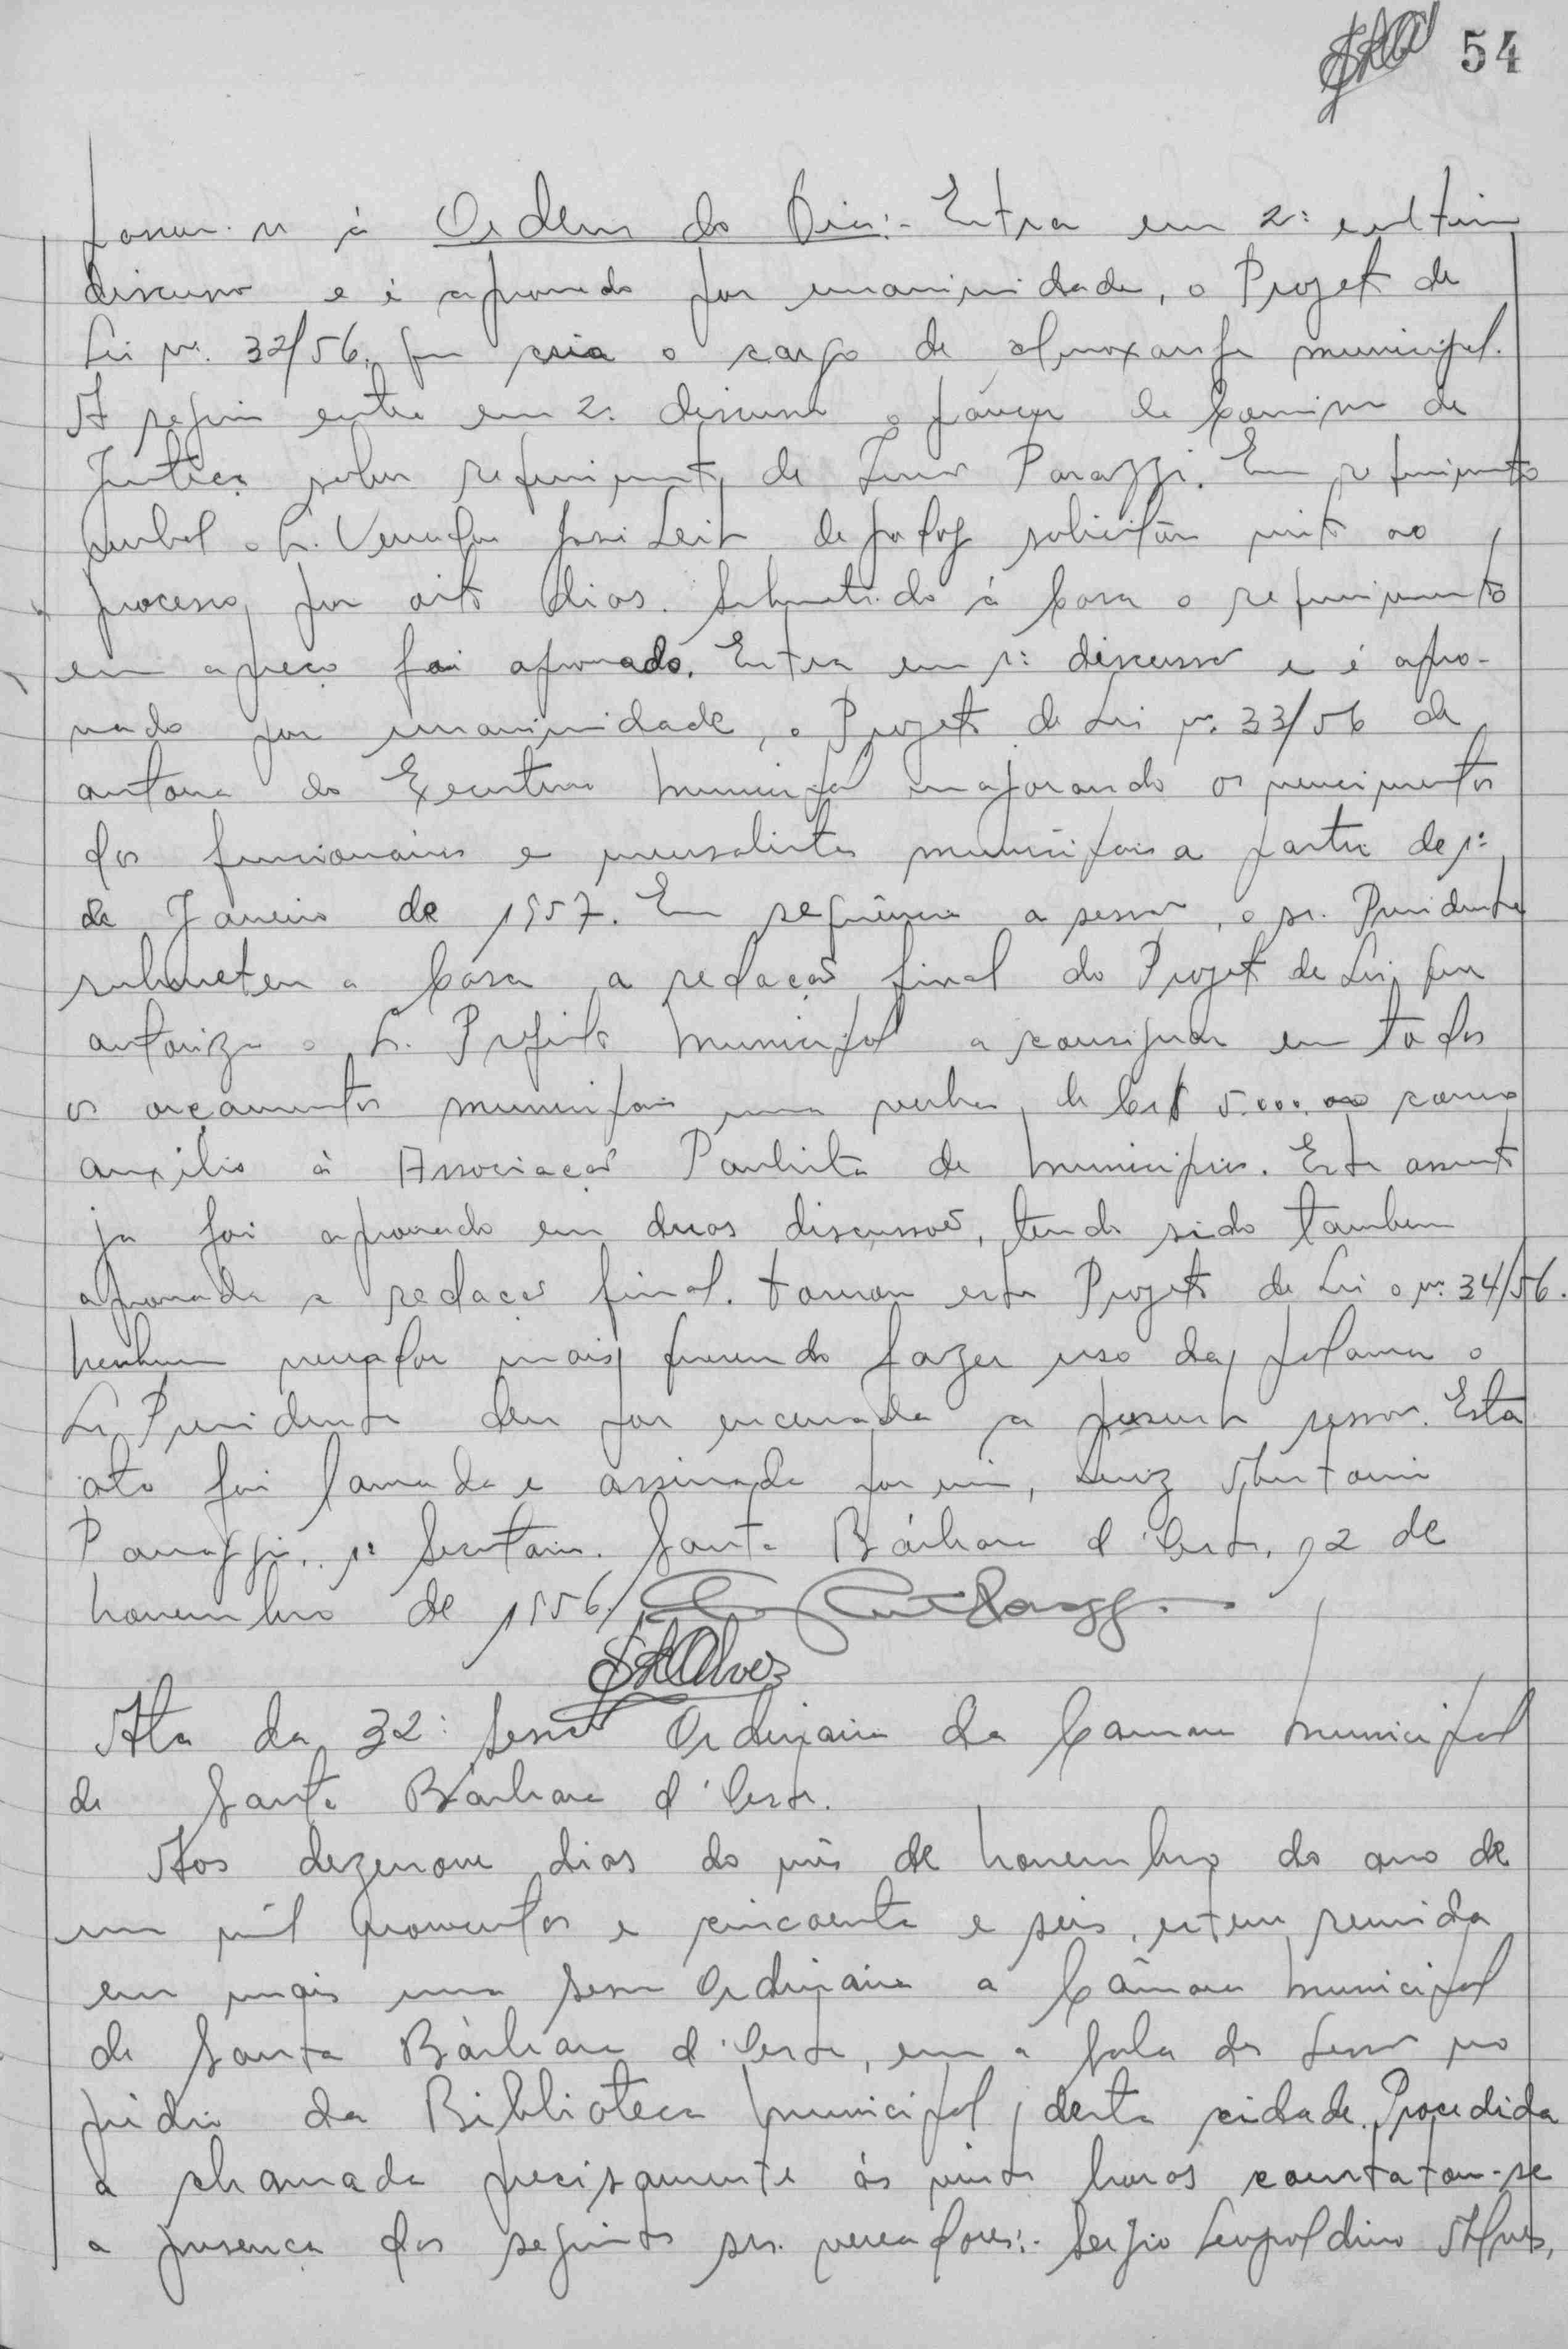 54
passou-se à Ordem do Dia:- Entra em 2ª e ultima
discussão e é aprovado por unanimidade, o Projeto de
Lei nº. 32/56, que cria o cargo de almoxarife municipal.
A seguir entra em 2ª discussão o parecer da Comissão de
Justiça sobre requerimento de Parazzi. Em requerimento
verbal o Sr. Vereador José Leite de solicitou vista ao
processo, por oito dias. Submetido à Casa o requerimento
em apreço foi aprovado. Entra em 1ª discussão e é apro-
vado por unanimidade, o Projeto de Lei nº. 33/56 de
autoria do Executivo Municipal majorando os vencimentos
dos funcionários e mensalistas municipais a partir de 1º
de Janeiro de 1957. Em sequência a sessão, o sr. Presidente
submeteu a Casa a redação final do Projeto de Lei, que
autoriza o Sr. Prefeito Municipal a consignar em todos
os orçamentos municipais uma verba de Cr$ 5.000,00 como
auxilio à Associação Paulista de Municipios. Este assunto
ja foi aprovado em duas discussões, tendo sido tambem
aprovada a redação final. Tomou este Projeto de Lei o nº. 34/56.
Nenhum vereador mais querendo fazer uso da palavra o
Sr. Presidente deu por encerrada a presente sessão. Esta
ata foi lavrada e assinada por mim, Luiz Antonio
Panaggio, 1º Secretario. Santa Bárbara d'Oeste, 12 de
Novembro de 1956.
SLAlves
Ata da 32ª Sessão Ordinaria da Camara Municipal
de Santa Bárbara d'Oeste.
Aos dezenove dias do mês de Novembro do ano de
um mil novecentos e cincoenta e seis, esteve reunida
em mais uma sessão Ordinaria a Câmara Municipal
de Santa Bárbara d'Oeste, em a Sala das Sessões no
prédio da Biblioteca Municipal, desta cidade. Procedida
a chamada precisamente ás vinte horas constatou-se
a presença dos seguintes srs. vereadores:- Sergio Leopoldino Alves,